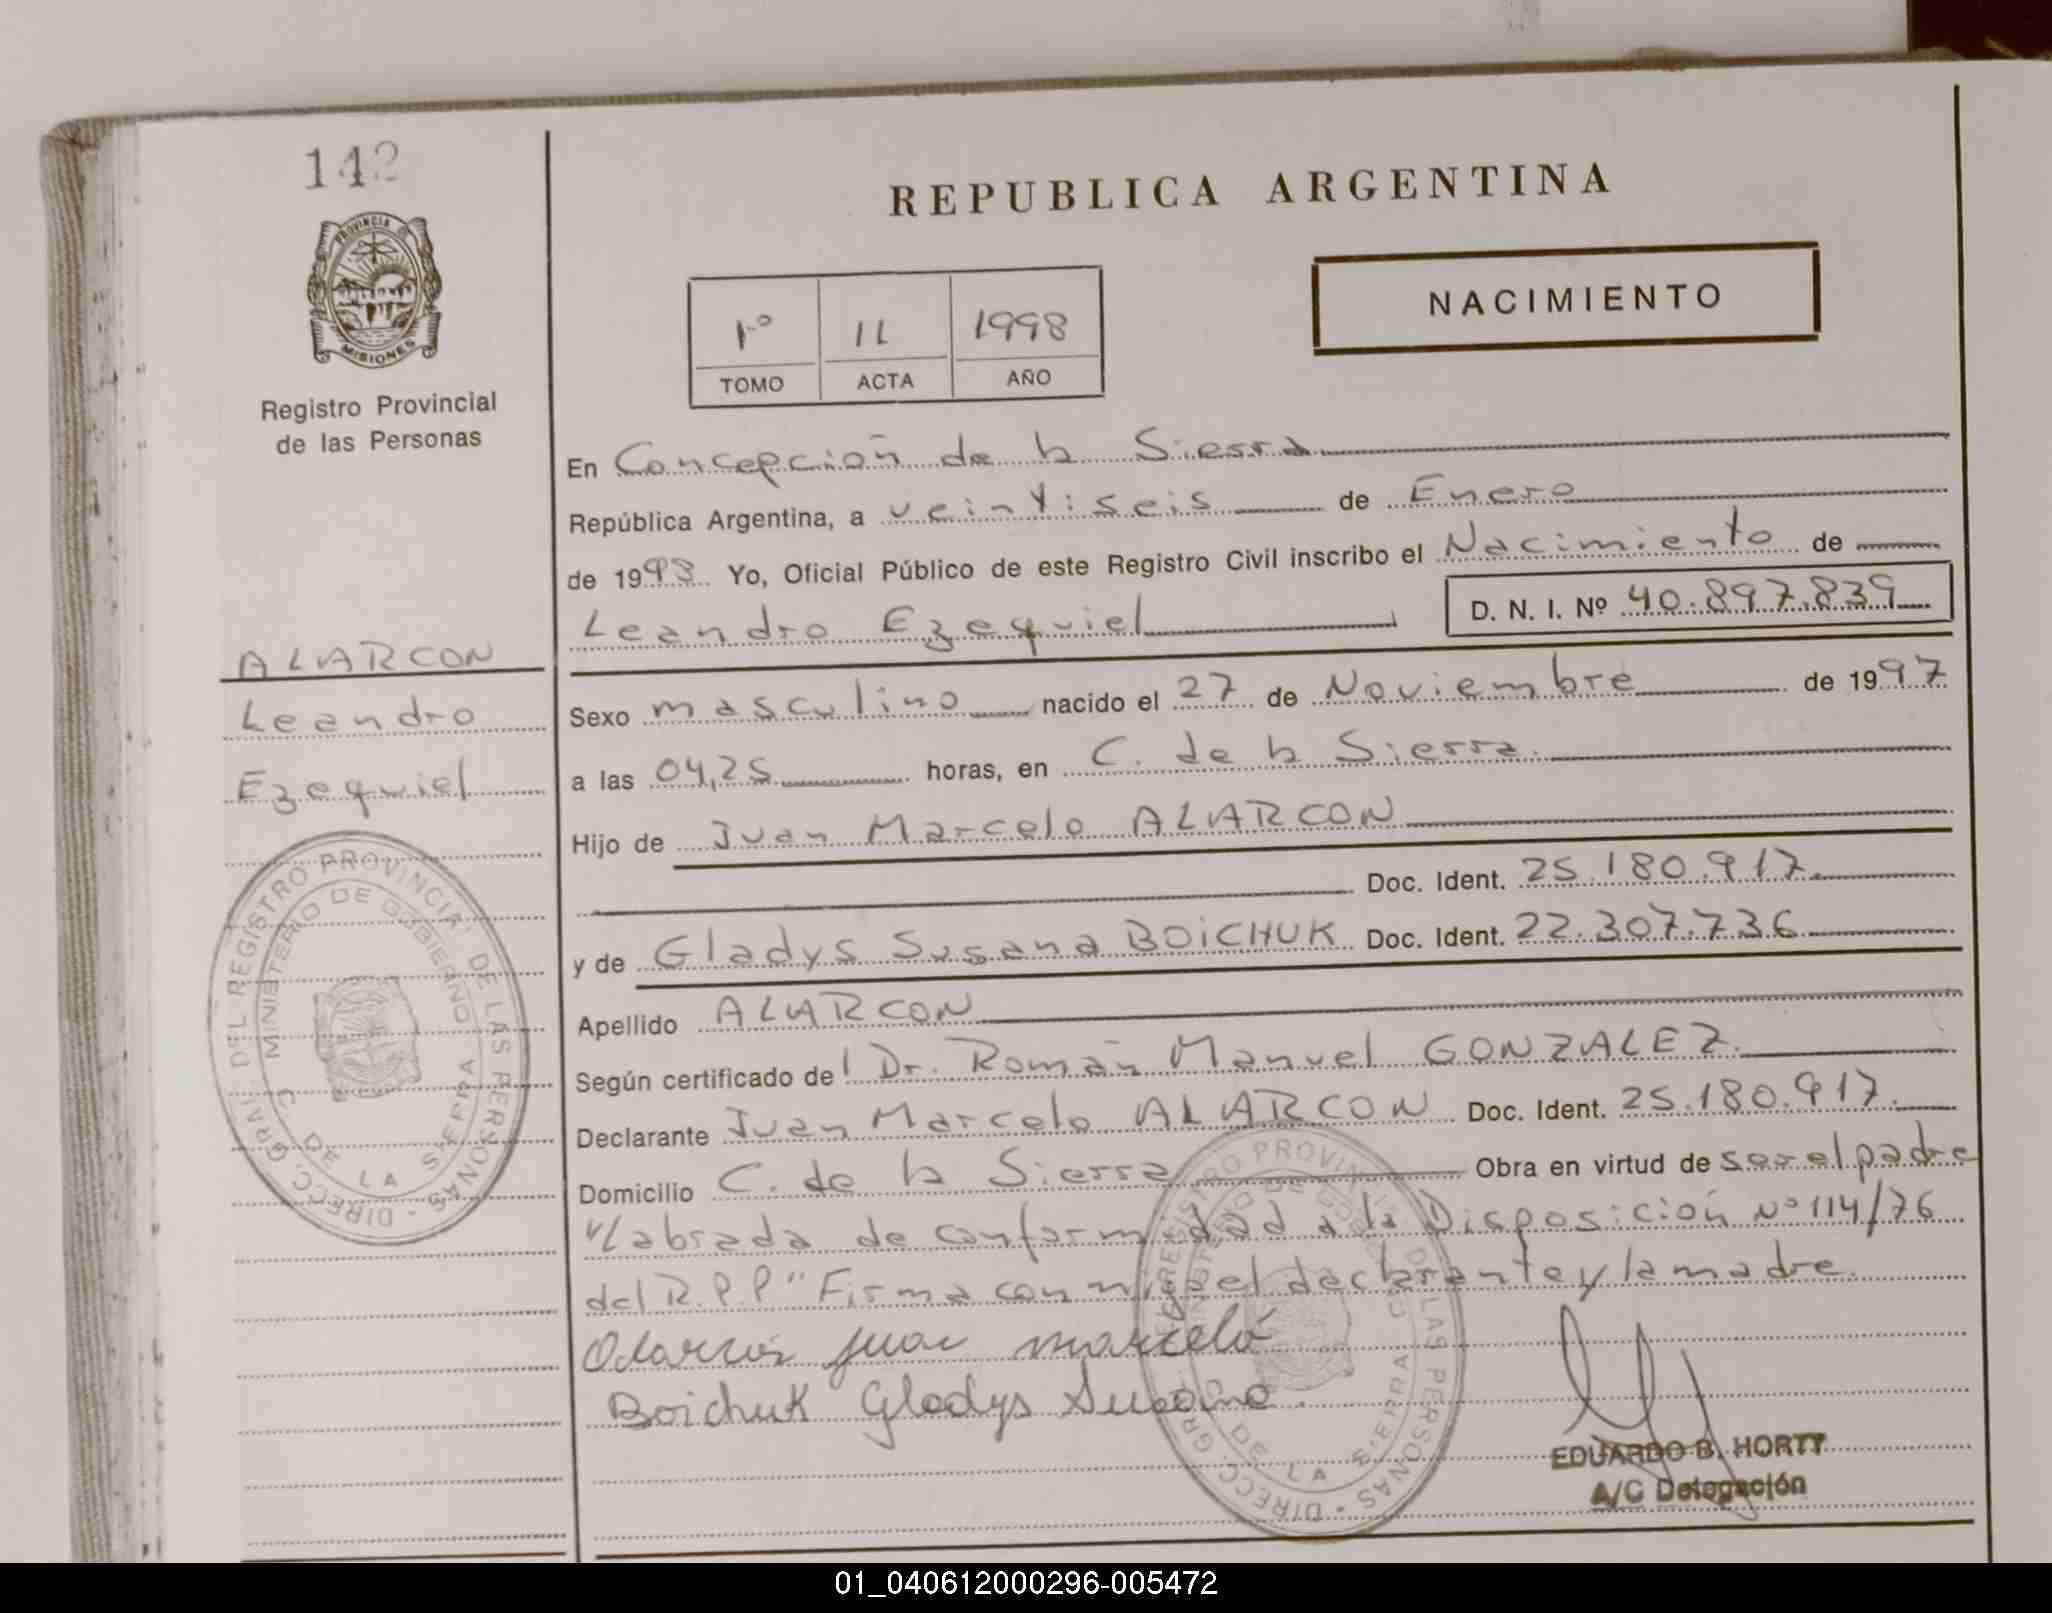 142
REPUBLICA ARGENTINA
PROVINCIA DE
MISIONES
NACIMIENTO
1º 11 1998
TOMO ACTA AÑO
Registro Provincial
de las Personas
En Concepción de la Sierra
República Argentina, a veintiseis de Enero
de 1998 Yo, Oficial Público de este Registro Civil inscribo el Nacimiento de
Leandro Ezequiel D. N. I. Nº 40.897.839
ALARCON
Leandro
Ezequiel
Sexo masculino nacido el 27 de Noviembre de 1997
a las 04,25 horas, en C. de la Sierra.
Hijo de Juan Marcelo ALARCON
Doc. Ident. 25.180.917.
y de Gladys Susana BOICHUK Doc. Ident. 22.307.736
Apellido ALARCON
Según certificado del Dr. Román Manuel GONZALEZ.
Declarante Juan Marcelo ALARCON Doc. Ident. 25.180.917.
Domicilio C. de la Sierra Obra en virtud de ser el padre
"Labrada de conformidad a la Disposición Nº 114/76
del R.P.P" Firma conmigo el declarante y la madre.
Alarcón Juan Marcelo
Boichuk Gladys Susana.
DIRECC. GRAL. DEL REGISTRO PROVINCIAL DE LAS PERSONAS
MINISTERIO DE GOBIERNO
C. DE LA SIERRA
DIRECC. GRAL. DEL REGISTRO PROVINCIAL DE LAS PERSONAS
MINISTERIO DE GOBIERNO
C. DE LA SIERRA
EDUARDO B. HORTT
A/C Delegación
01_040612000296-005472